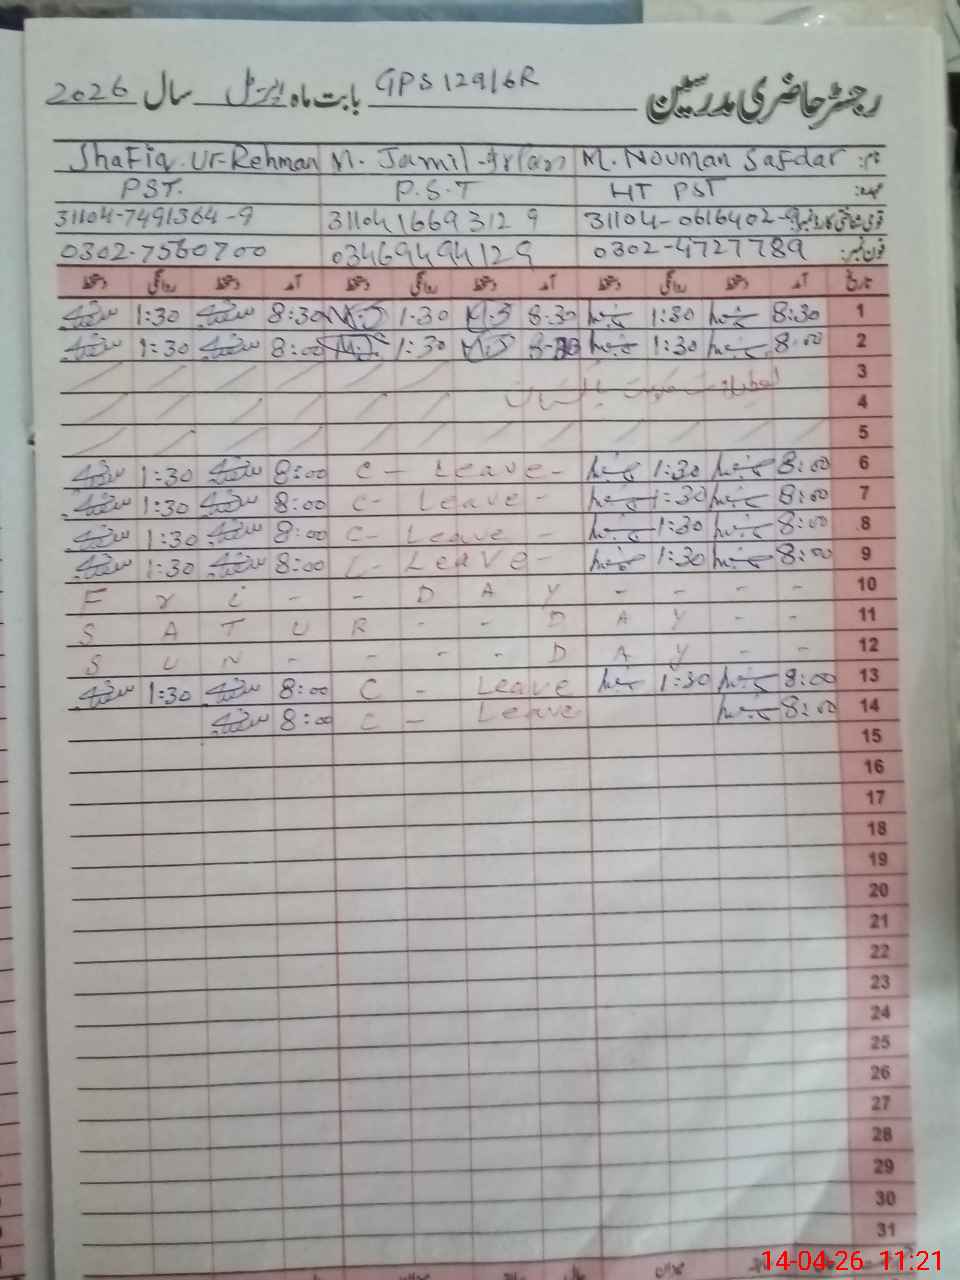 رجسٹر حاضری مدرسین GPS 129/6R بابت ماہ اپریل سال 2026
نام: M. Nouman Safdar M. Jamil Irfan Shafiq Ur-Rehman
عہدہ: HT PST P.S.T PST.
قومی شناختی کارڈ نمبر: 31104-0616402-9 31104 1669312 9 31104-7491364-9
فون نمبر: 0302-4727789 03469494129 0302-7560700
تاریخ آمد دستخط روانگی دستخط آمد دستخط روانگی دستخط آمد دستخط روانگی دستخط
1 8:30 1:30 8:30 M.J 1:30 M.J 8:30 1:30
2 8:00 1:30 M.J 1:30 M.J 8:00 1:30
3
4
5
6 8:00 1:30 C - Leave - 8:00 1:30
7 8:00 1:30 C - Leave - 8:00 1:30
8 8:00 1:30 C - Leave - 8:00 1:30
9 8:00 1:30 C - Leave - 8:00 1:30
10 F r i - - D A Y - - - -
11 S A T U R - - D A Y - -
12 S U N - - - - D A Y - -
13 8:00 1:30 C - Leave 8:00 1:30
14 8:00 C - Leave 8:00
15
16
17
18
19
20
21
22
23
24
25
26
27
28
29
30
31
14-04-26 11:21